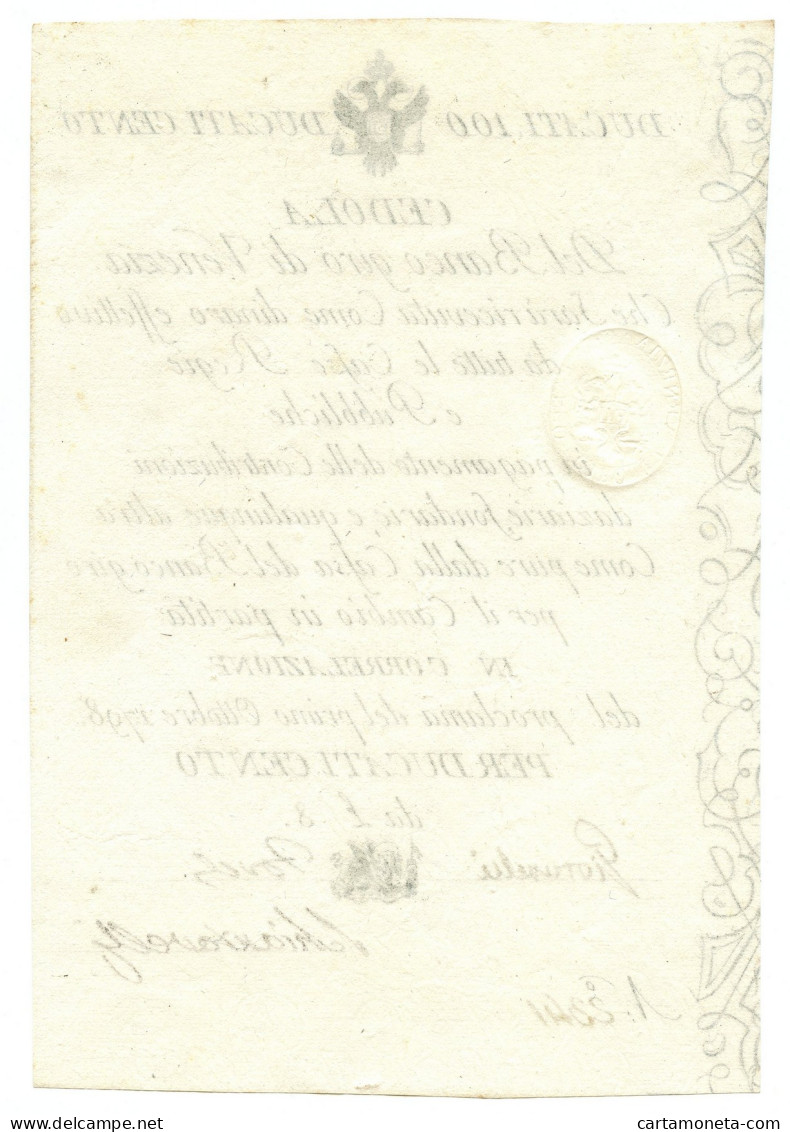 DUCATI CENTO DUCATI 100
CEDOLA
Del Banco giro di Venezia
Che Sarà ricevuta Come dinaro effettivo
da tutte le Casse Regie
e Pubbliche
in pagamento delle Contribuzioni
daziarie, fondarie, e qualunque altra
Come pure dalla Cassa del Banco giro
per il Cambio in partita
IN CORRELAZIONE
del proclama del primo Ottobre 1798.
PER DUCATI CENTO
da L. 8.
N.
cartamoneta-com